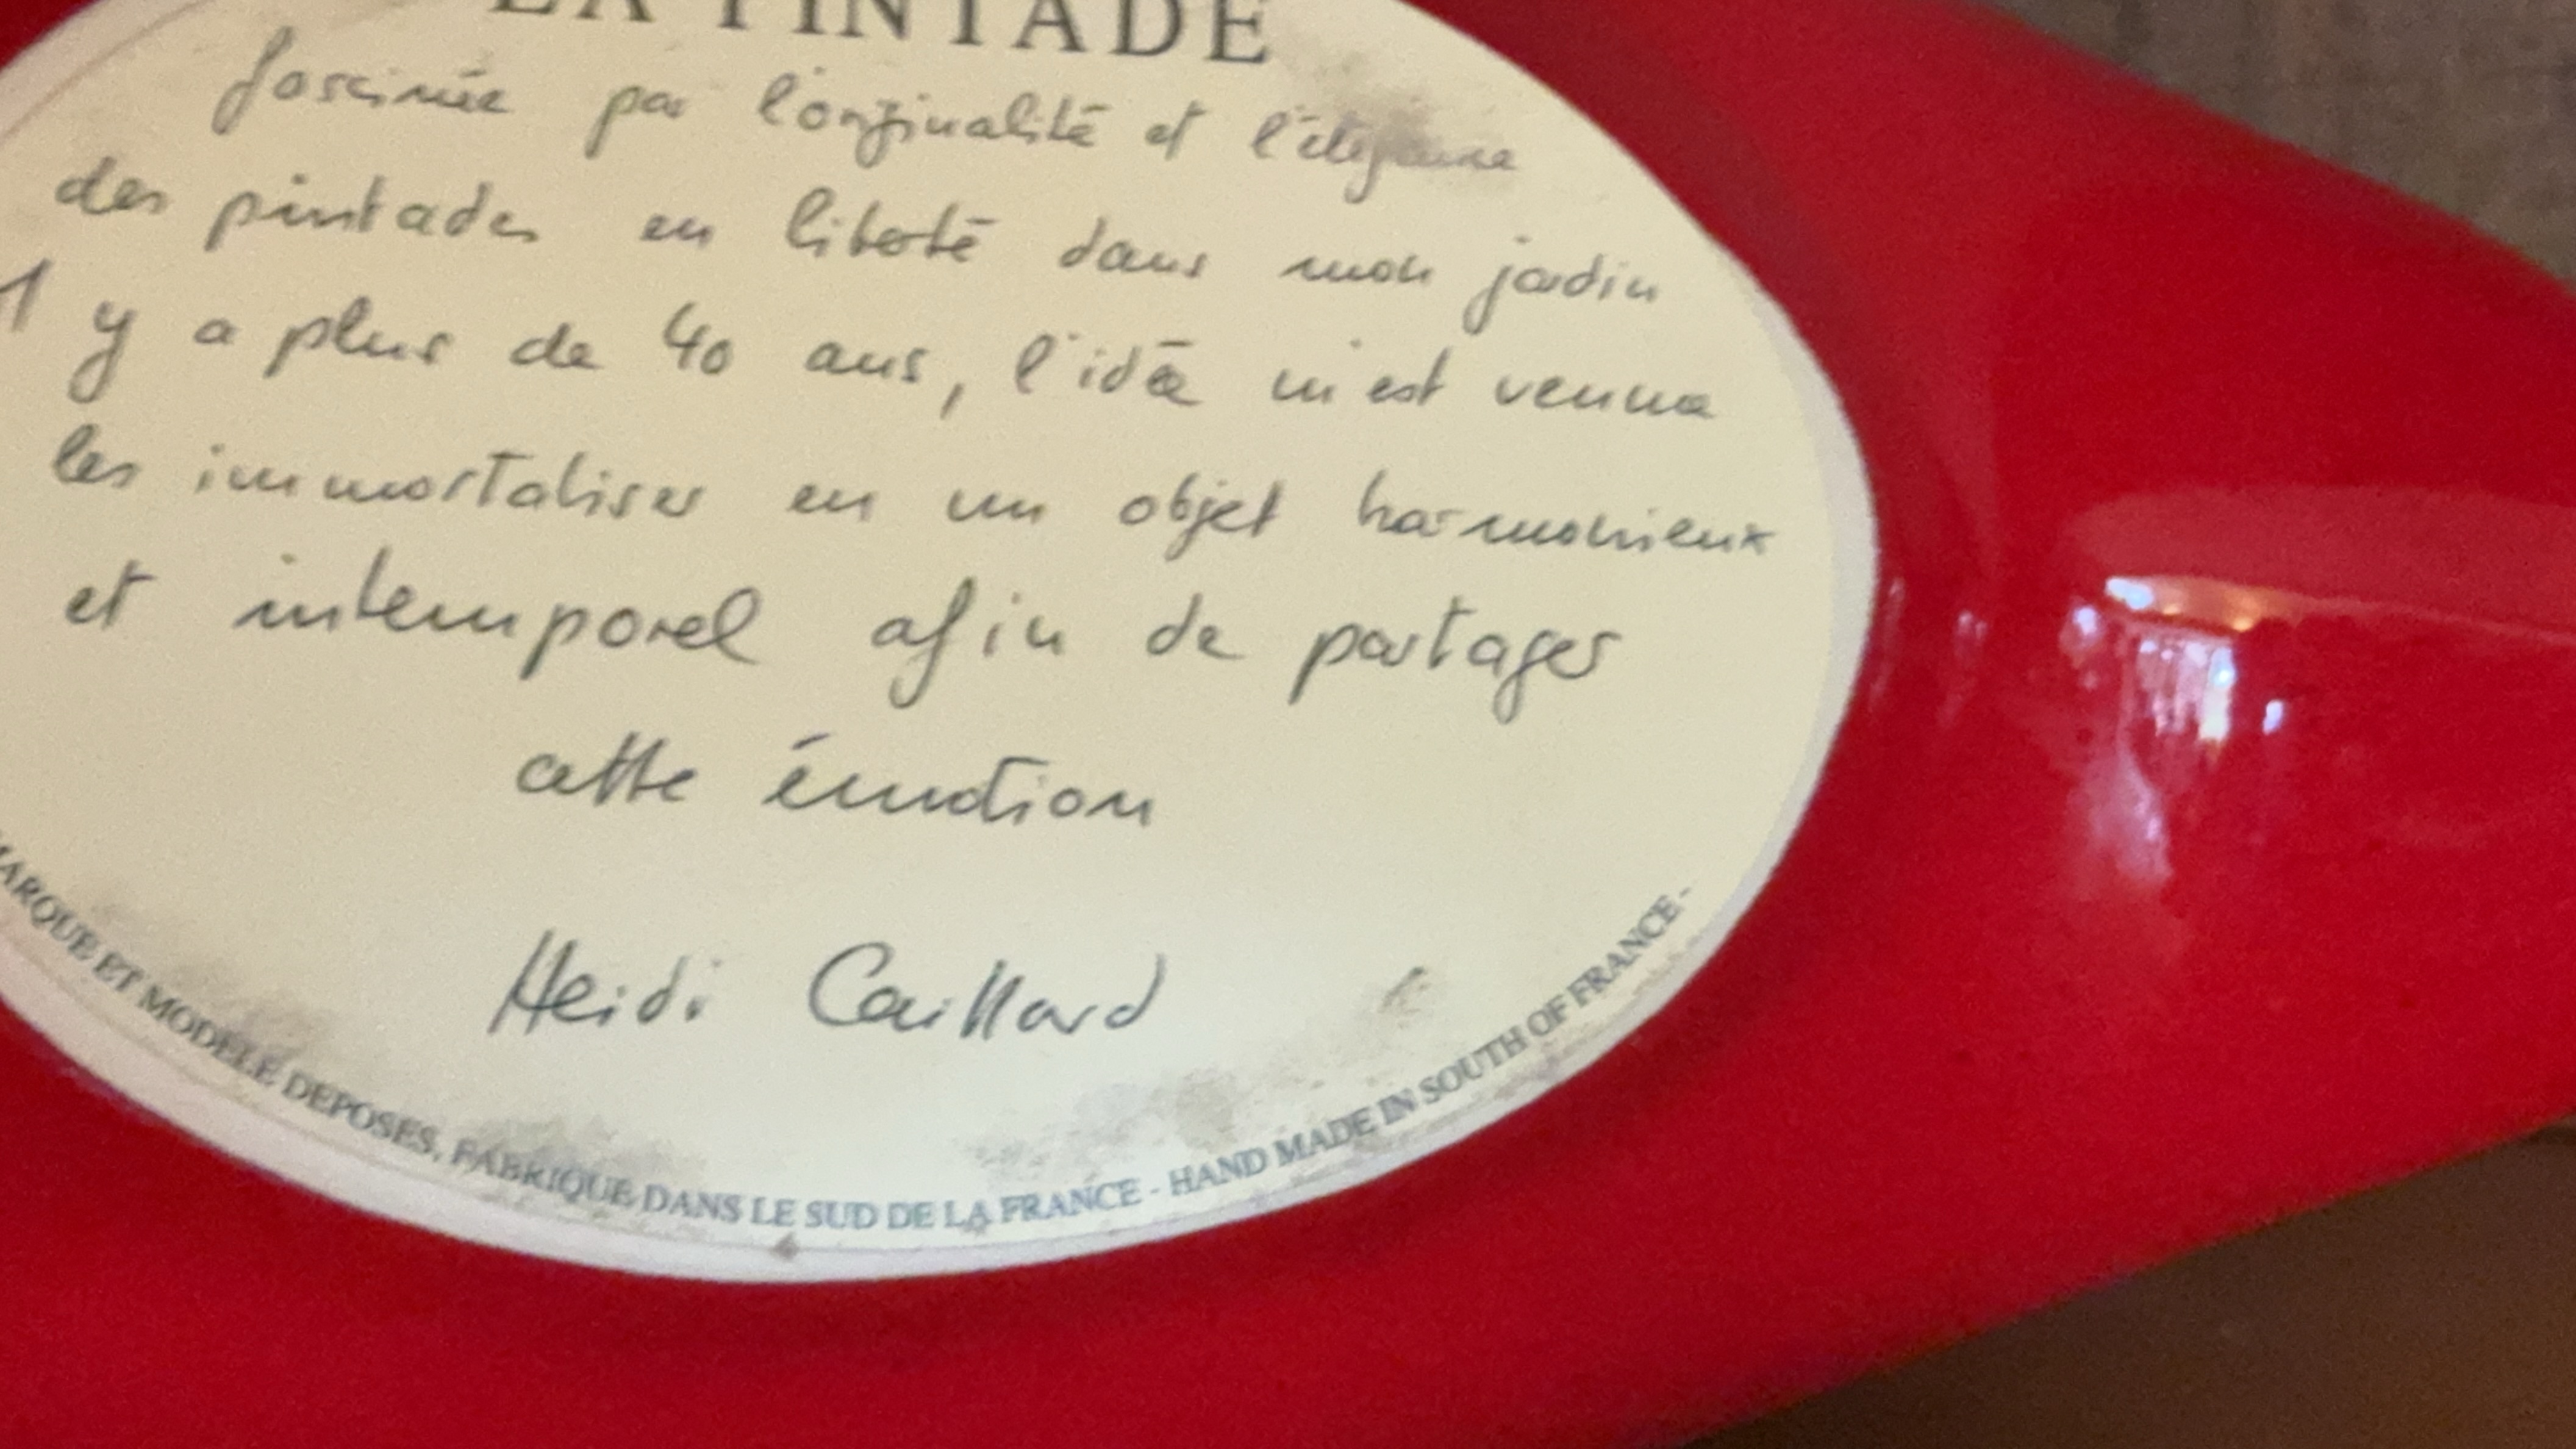 LA PINTADE
fascinée par l'originalité et l'élégance
des pintades en liberté dans mon jardin
il y a plus de 40 ans, l'idée m'est venue
les immortaliser en un objet harmonieux
et intemporel afin de partager
cette émotion
Heidi Caillard
MARQUE ET MODELE DEPOSES, FABRIQUE DANS LE SUD DE LA FRANCE - HAND MADE IN SOUTH OF FRANCE -